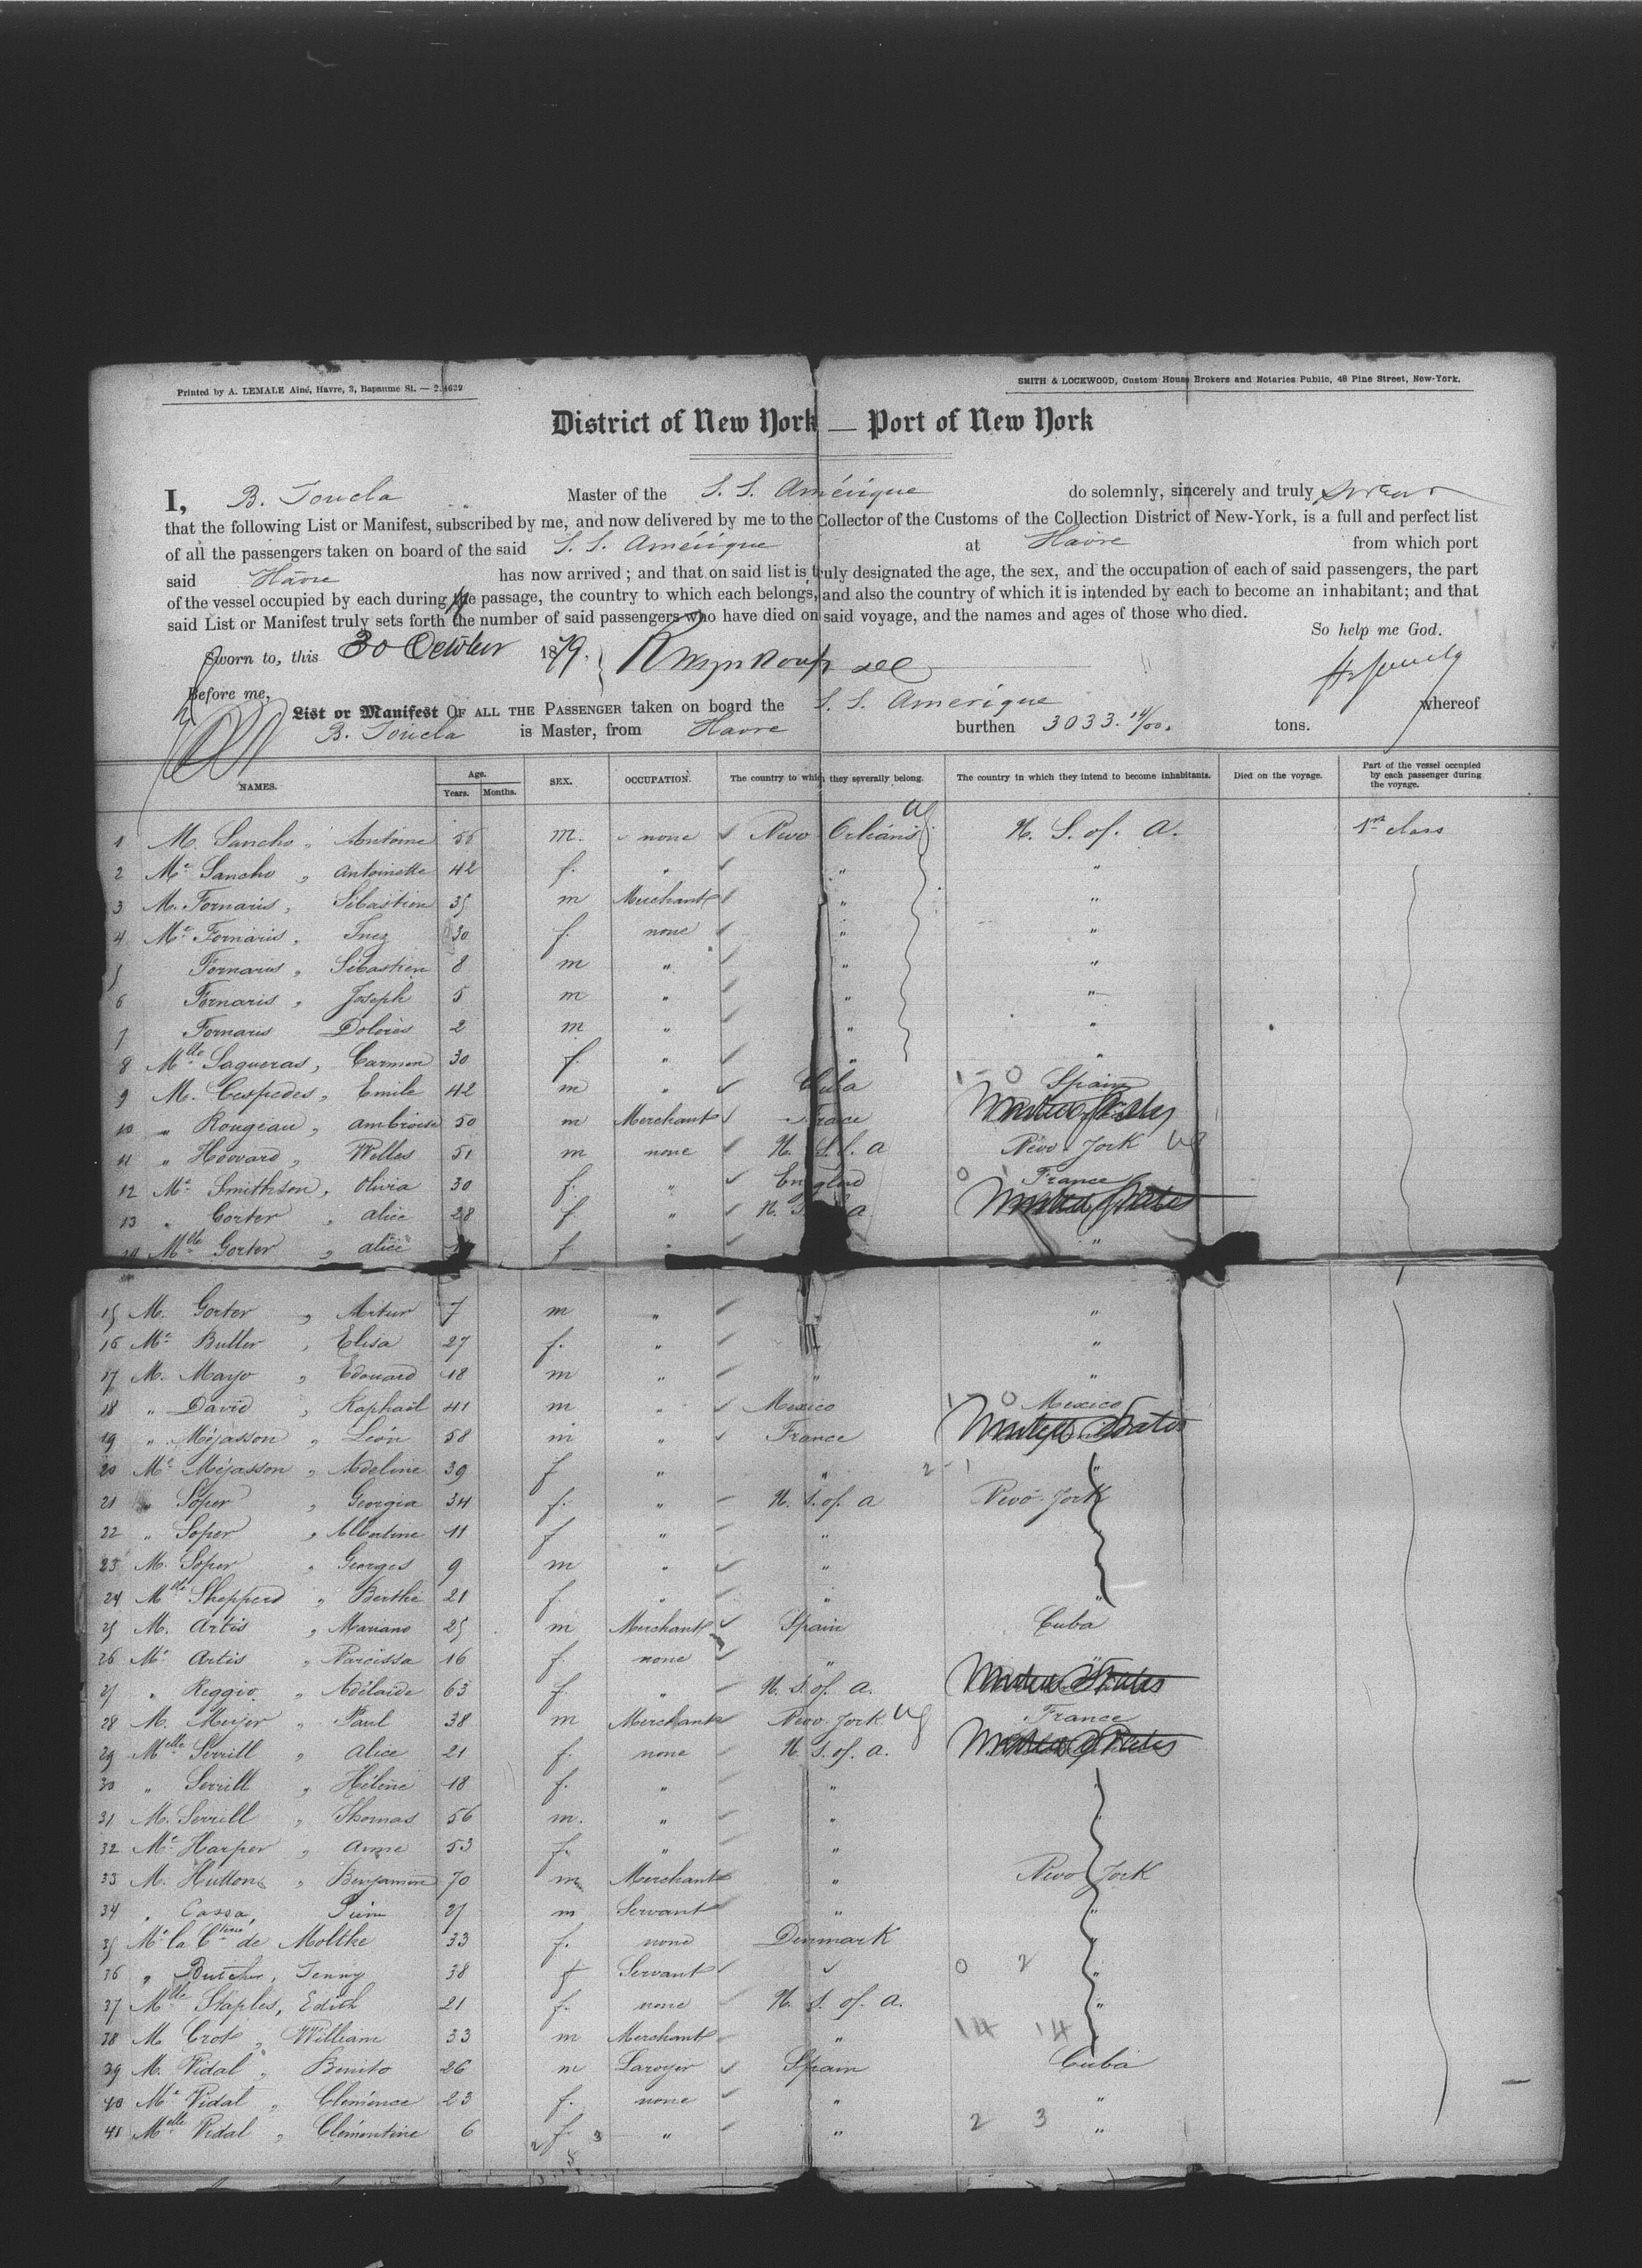 Printed by A. LEMALE Aîné, Havre, 3, Bapaume St. — 2.4639
SMITH & LOCKWOOD, Custom House Brokers and Notaries Public, 48 Pine Street, New-York.
District of New York — Port of New York
I, B. Joucla Master of the S. S. Amérique do solemnly, sincerely and truly swear
that the following List or Manifest, subscribed by me, and now delivered by me to the Collector of the Customs of the Collection District of New-York, is a full and perfect list
of all the passengers taken on board of the said S. S. Amérique at Havre from which port
said Hâvre has now arrived ; and that on said list is truly designated the age, the sex, and the occupation of each of said passengers, the part
of the vessel occupied by each during the passage, the country to which each belongs, and also the country of which it is intended by each to become an inhabitant; and that
said List or Manifest truly sets forth the number of said passengers who have died on said voyage, and the names and ages of those who died.
So help me God.
Sworn to, this 30 October 1879.
Before me,
List or Manifest OF ALL THE PASSENGER taken on board the S. S. Amerique whereof
B. Joucla is Master, from Havre burthen 3033. 14/00. tons.
NAMES. Age. Years. Months. SEX. OCCUPATION. The country to which they severally belong. The country in which they intend to become inhabitants. Died on the voyage. Part of the vessel occupied by each passenger during the voyage.
1 M. Sancho, Antoine 55 m. none New Orléans U. S. of. A. 1st class
2 Me Sancho, Antoinette 42 f. " " "
3 M. Fornaris, Sébastien 35 m Merchant " "
4 Me Fornaris, Inez 30 f. none " "
5 Fornaris, Sébastien 8 m " " "
6 Fornaris, Joseph 5 m " " "
7 Fornaris Dolores 2 m " " "
8 Mlle Sagueras, Carmen 30 f. " " "
9 M. Cespedes, Emile 42 m " Cuba 1 - 0 Spain
10 " Rougiau, Ambroise 50 m Merchant France United States
11 " Howard, Welles 51 m none U. S. of. a New York US
12 Me Smithson, Olivia 30 f. " England 0 1 France
13 " Gorter, alice 28 f " U. S. of a United States
14 Mlle Gorter, alice f " "
15 M. Gorter, Artur 7 m " "
16 Me Butler, Elisa 27 f. " " "
17 M. Mayo, Edouard 18 m " " "
18 " David, Raphaël 41 m " Mexico 1 0 Mexico
19 " Méjasson, Léon 58 m " France United States
20 Me Méjasson, Adeline 39 f " " 2 - 1 "
21 " Soper, Georgia 34 f. " U. S. of. a New-York
22 " Soper, Albertine 11 f " "
23 M. Soper, Georges 9 m " "
24 Mlle Shepperd, Berthe 21 f. " " "
25 M. Artis, Mariano 25 m Merchant Spain Cuba
26 Me Artis, Narcissa 16 f. none " "
27 " Reggio, Adélaïde 63 f. " U. S. of. a. United States
28 M. Meyer, Paul 38 m Merchant New-York US France
29 Melle Serrill, Alice 21 f. none U. S. of. a. United States
30 " Serrill, Hélène 18 f. " "
31 M. Serrill, Thomas 56 m. " "
32 Me Harper, Anne 53 f. " "
33 M. Hutton, Benjamin 70 m Merchant " New York
34 " Cassa, 27 m Servant " "
35 Me la Ctesse de Moltke 33 f. none Denmark "
36 " Butcher, Jenny 38 f Servant 0 2 "
37 Mlle Staples, Edith 21 f. none U. S. of. a. "
38 M. William 33 m Merchant " 14 14
39 M. Vidal, Benito 26 m Lawyer Spain Cuba
40 Me Vidal, Clémence 23 f. none " "
41 Melle Vidal, Clémentine 6 f. " " 2 3 "